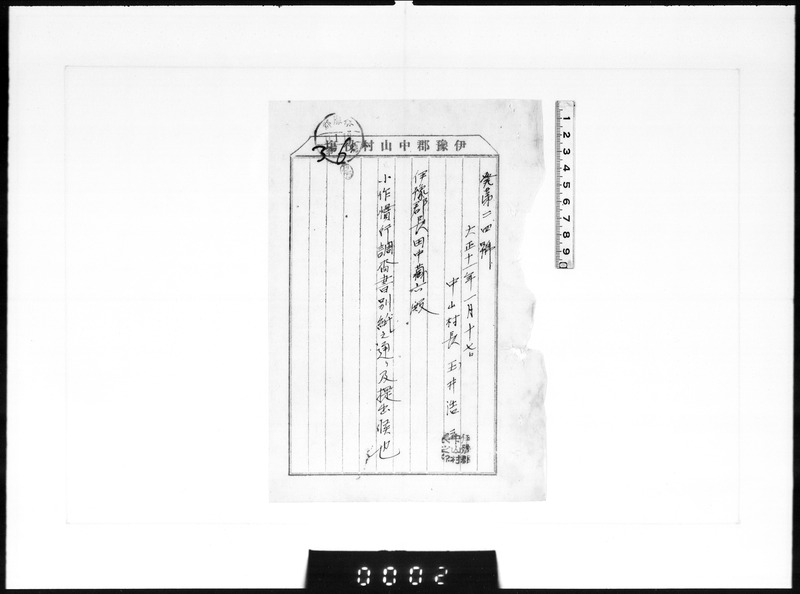 伊豫郡中山村役場
36
発第二四號
大正十一年一月十七日
中山村長 玉井浩
伊豫郡長田中 六殿
小作慣行調査書別紙之通リ及提出候也
1 2 3 4 5 6 7 8 9 10
0002